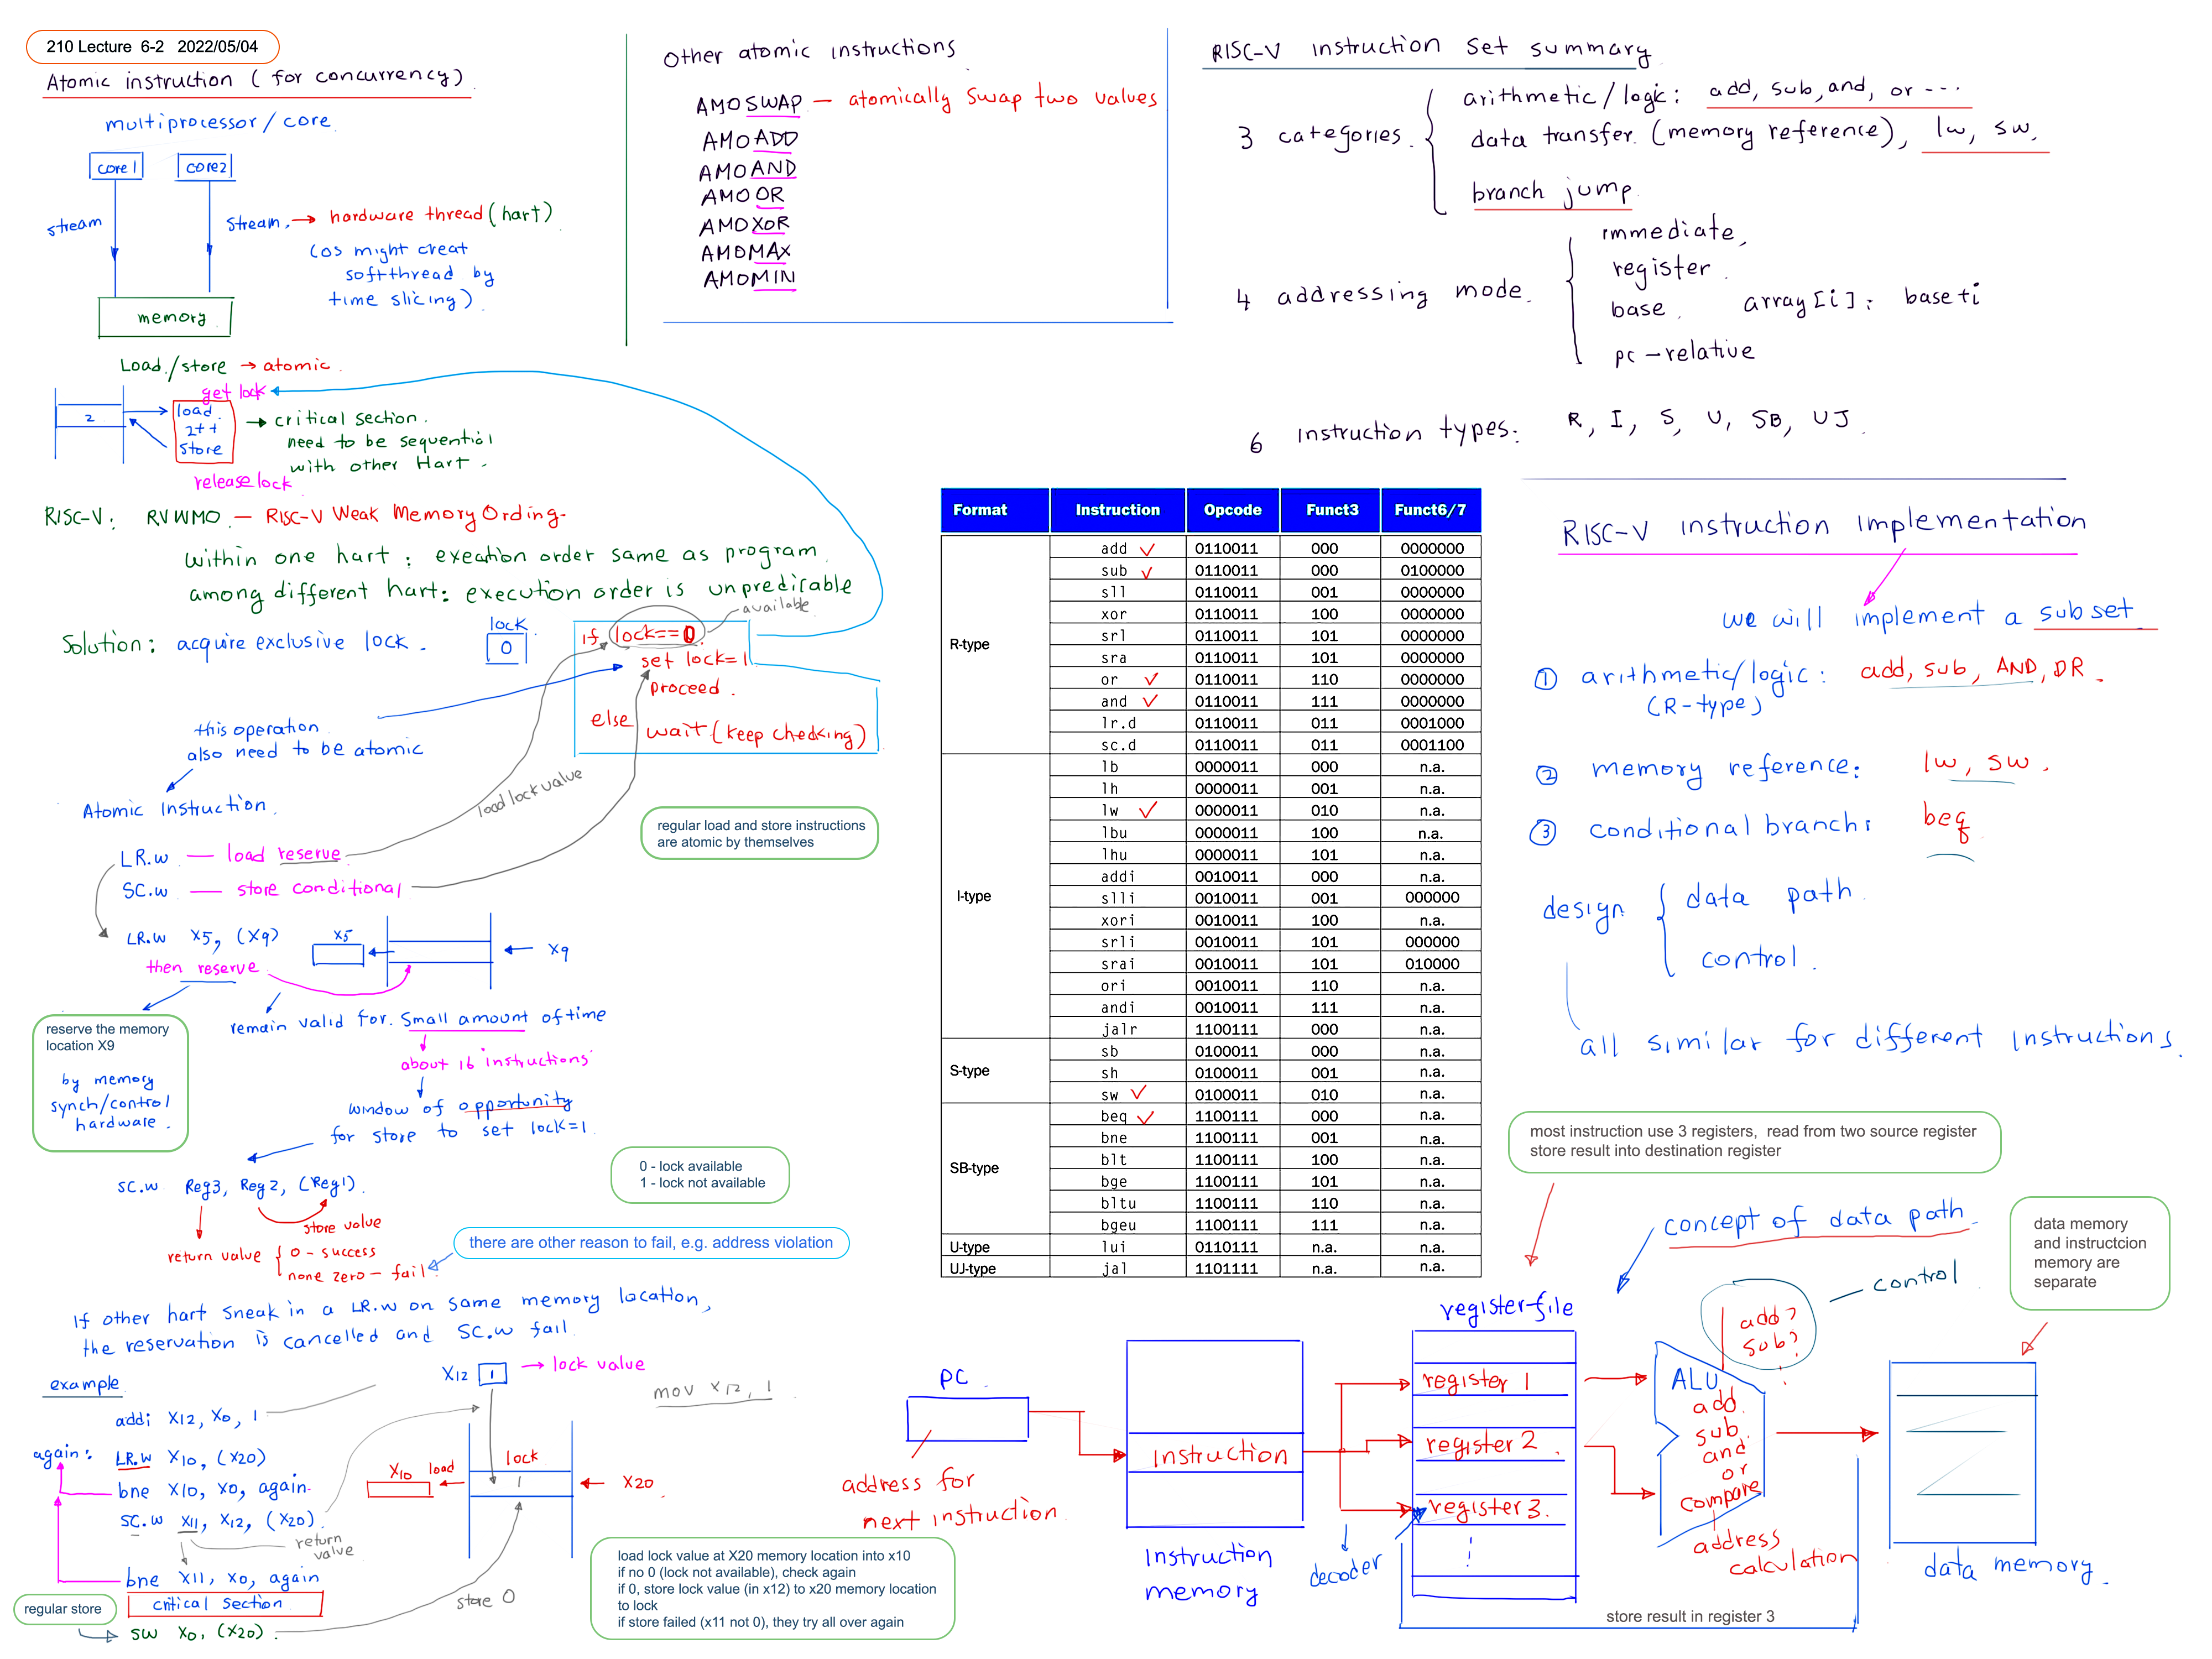 210 Lecture 6-2 2022/05/04
Atomic instruction ( for concurrency)
multiprocessor / core
core1 core2
stream
stream. → hardware thread (hart)
(os might creat
softthread by
time slicing)
memory
Load/store → atomic
get lock
2
load
2++
store
→ critical section.
need to be sequential
with other Hart.
release lock
RISC-V: RVWMO — RISC-V Weak Memory Ording
within one hart: execation order same as program
among different hart: execution order is unpredicable
Solution: acquire exclusive lock.
lock
0
available
if lock==0
set lock=1
proceed.
else wait (keep checking)
this operation
also need to be atomic
Atomic instruction
load lock value
regular load and store instructions
are atomic by themselves
LR.w — load reserve
SC.w — store conditional
LR.w x5, (x9)
x5
← x9
then reserve
reserve the memory
location X9
by memory
synch/control
hardware.
remain valid for small amount of time
about 16 instructions
window of opportunity
for store to set lock=1
0 - lock available
1 - lock not available
SC.w Reg3, Reg2, (Reg1)
store value
return value { 0 - success
none zero - fail
there are other reason to fail, e.g. address violation
If other hart sneak in a LR.w on same memory location,
the reservation is cancelled and SC.w fail
example
X12 1 → lock value
mov x12, 1
addi x12, x0, 1
again: LR.w x10, (x20)
bne x10, x0, again
SC.w x11, x12, (x20)
return
value
bne x11, x0, again
critical section
regular store
sw x0, (x20)
store 0
x10 load
lock
1
← x20
load lock value at X20 memory location into x10
if no 0 (lock not available), check again
if 0, store lock value (in x12) to x20 memory location
to lock
if store failed (x11 not 0), they try all over again
Other atomic instructions
AMOSWAP — atomically swap two values
AMOADD
AMOAND
AMOOR
AMOXOR
AMOMAX
AMOMIN
RISC-V instruction set summary
3 categories.
arithmetic/logic: add, sub, and, or ...
data transfer. (memory reference), lw, sw.
branch jump
4 addressing mode.
immediate,
register
base. array[i]: base+i
pc-relative
6 instruction types: R, I, S, U, SB, UJ
Format Instruction Opcode Funct3 Funct6/7
R-type
add 0110011 000 0000000
sub 0110011 000 0100000
sll 0110011 001 0000000
xor 0110011 100 0000000
srl 0110011 101 0000000
sra 0110011 101 0000000
or 0110011 110 0000000
and 0110011 111 0000000
lr.d 0110011 011 0001000
sc.d 0110011 011 0001100
I-type
lb 0000011 000 n.a.
lh 0000011 001 n.a.
lw 0000011 010 n.a.
lbu 0000011 100 n.a.
lhu 0000011 101 n.a.
addi 0010011 000 n.a.
slli 0010011 001 000000
xori 0010011 100 n.a.
srli 0010011 101 000000
srai 0010011 101 010000
ori 0010011 110 n.a.
andi 0010011 111 n.a.
jalr 1100111 000 n.a.
S-type
sb 0100011 000 n.a.
sh 0100011 001 n.a.
sw 0100011 010 n.a.
SB-type
beq 1100111 000 n.a.
bne 1100111 001 n.a.
blt 1100111 100 n.a.
bge 1100111 101 n.a.
bltu 1100111 110 n.a.
bgeu 1100111 111 n.a.
U-type lui 0110111 n.a. n.a.
UJ-type jal 1101111 n.a. n.a.
RISC-V instruction implementation
we will implement a subset
① arithmetic/logic: add, sub, AND, OR.
(R-type)
② memory reference: lw, sw.
③ conditional branch: beq
design { data path
control.
all similar for different instructions.
most instruction use 3 registers, read from two source register
store result into destination register
concept of data path
data memory
and instructcion
memory are
separate
control
add?
sub?
PC
address for
next instruction
instruction
instruction
memory
decoder
register file
register 1
register 2
register 3
ALU
add
sub
and
or
compare
address
calculation
data memory
store result in register 3